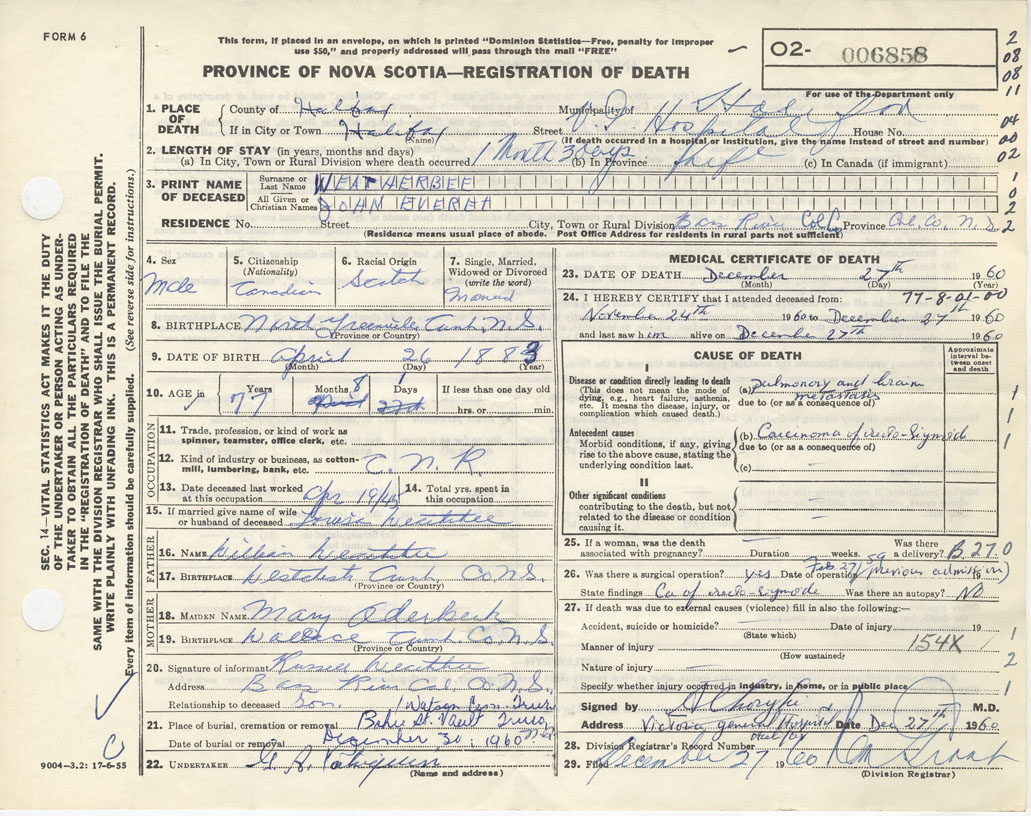 FORM 6
This form, if placed in an envelope, on which is printed "Dominion Statistics—Free, penalty for improper
use $50," and properly addressed will pass through the mail "FREE"
PROVINCE OF NOVA SCOTIA—REGISTRATION OF DEATH
O2- 006858
For use of the Department only
2
08
08
11
04
00
02
1
0
2
2
1. PLACE OF DEATH
County of Halifax Municipality of
If in City or Town Halifax Street V. G. Hospital House No.
(Name) (If death occurred in a hospital or institution, give the name instead of street and number)
2. LENGTH OF STAY (in years, months and days)
(a) In City, Town or Rural Division where death occurred 1 Month 3 days (b) In Province life (c) In Canada (if immigrant)
3. PRINT NAME OF DECEASED
Surname or Last Name WEATHERBEE
All Given or Christian Names JOHN EVERET
RESIDENCE No. Street City, Town or Rural Division Bass River Col. Co. Province Col. Co. N.S.
(Residence means usual place of abode. Post Office Address for residents in rural parts not sufficient)
4. Sex
Male
5. Citizenship
(Nationality)
Canadian
6. Racial Origin
Scotch
7. Single, Married, Widowed or Divorced
(write the word)
Married
8. BIRTHPLACE North Greenville Cumb. N.S.
(Province or Country)
9. DATE OF BIRTH April 26 1883
(Month) (Day) (Year)
10. AGE in Years 77 Months 8 Days 1 If less than one day old
hrs. or min.
OCCUPATION
11. Trade, profession, or kind of work as spinner, teamster, office clerk, etc.
12. Kind of industry or business, as cotton-mill, lumbering, bank, etc. C. N. R
13. Date deceased last worked at this occupation Apr 19/45 14. Total yrs. spent in this occupation
15. If married give name of wife or husband of deceased Louise Weatherbee
FATHER
16. NAME William Weatherbee
17. BIRTHPLACE Westchester Cumb. Co N.S.
(Province or Country)
MOTHER
18. MAIDEN NAME Mary
19. BIRTHPLACE Wallace Cumb Co. N.S.
(Province or Country)
20. Signature of informant Russell Weatherbee
Address Bass River Col. Co. N.S.
Relationship to deceased Son.
21. Place of burial, cremation or removal St. Vault Truro
Date of burial or removal December 30, 1960
22. UNDERTAKER
(Name and address)
MEDICAL CERTIFICATE OF DEATH
23. DATE OF DEATH December 27th 1960
(Month) (Day) (Year)
77-8-01-00
24. I HEREBY CERTIFY that I attended deceased from:
November 24th 1960 to December 27th 1960
and last saw him alive on December 27th 1960
CAUSE OF DEATH
Approximate interval between onset and death
I
Disease or condition directly leading to death
(This does not mean the mode of dying, e.g., heart failure, asthenia, etc. It means the disease, injury, or complication which caused death.)
(a) pulmonary and brain metastasis
due to (or as a consequence of)
Antecedent causes
Morbid conditions, if any, giving rise to the above cause, stating the underlying condition last.
(b) Carcinoma of recto-sigmoid
due to (or as a consequence of)
(c)
II
Other significant conditions
contributing to the death, but not related to the disease or condition causing it.
1
1
1
25. If a woman, was the death associated with pregnancy? Duration weeks. Was there a delivery? B 27.0
26. Was there a surgical operation? yes Date of operation Feb 27/59 19 (previous admission)
State findings Ca of recto-sigmoid Was there an autopsy? No
27. If death was due to external causes (violence) fill in also the following:—
Accident, suicide or homicide? Date of injury 19
(State which)
Manner of injury 154X
(How sustained)
Nature of injury
Specify whether injury occurred in industry, in home, or in public place
1
2
1
Signed by M.D.
Address Victoria General Hospital Halifax Date Dec 27th 1960
28. Division Registrar's Record Number
29. Filed December 27 1960
(Division Registrar)
SEC. 14—VITAL STATISTICS ACT MAKES IT THE DUTY
OF THE UNDERTAKER OR PERSON ACTING AS UNDER-
TAKER TO OBTAIN ALL THE PARTICULARS REQUIRED
IN THE "REGISTRATION OF DEATH" AND TO FILE THE
SAME WITH THE DIVISION REGISTRAR WHO SHALL ISSUE THE BURIAL PERMIT.
WRITE PLAINLY WITH UNFADING INK. THIS IS A PERMANENT RECORD.
Every item of information should be carefully supplied. (See reverse side for instructions.)
9004—3.2: 17-6-55